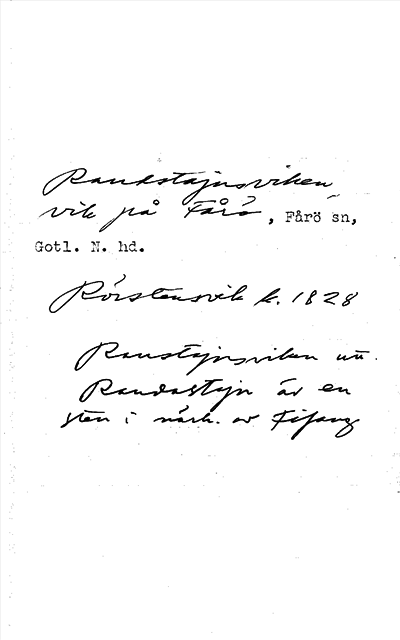 Raukstajnsviken
vik på Fårö, Fårö sn,
Gotl. N. hd.
Rörstensvik k. 1828
Raustajnsviken uu.
Raudastajn är en
sten i närh. av Fifang